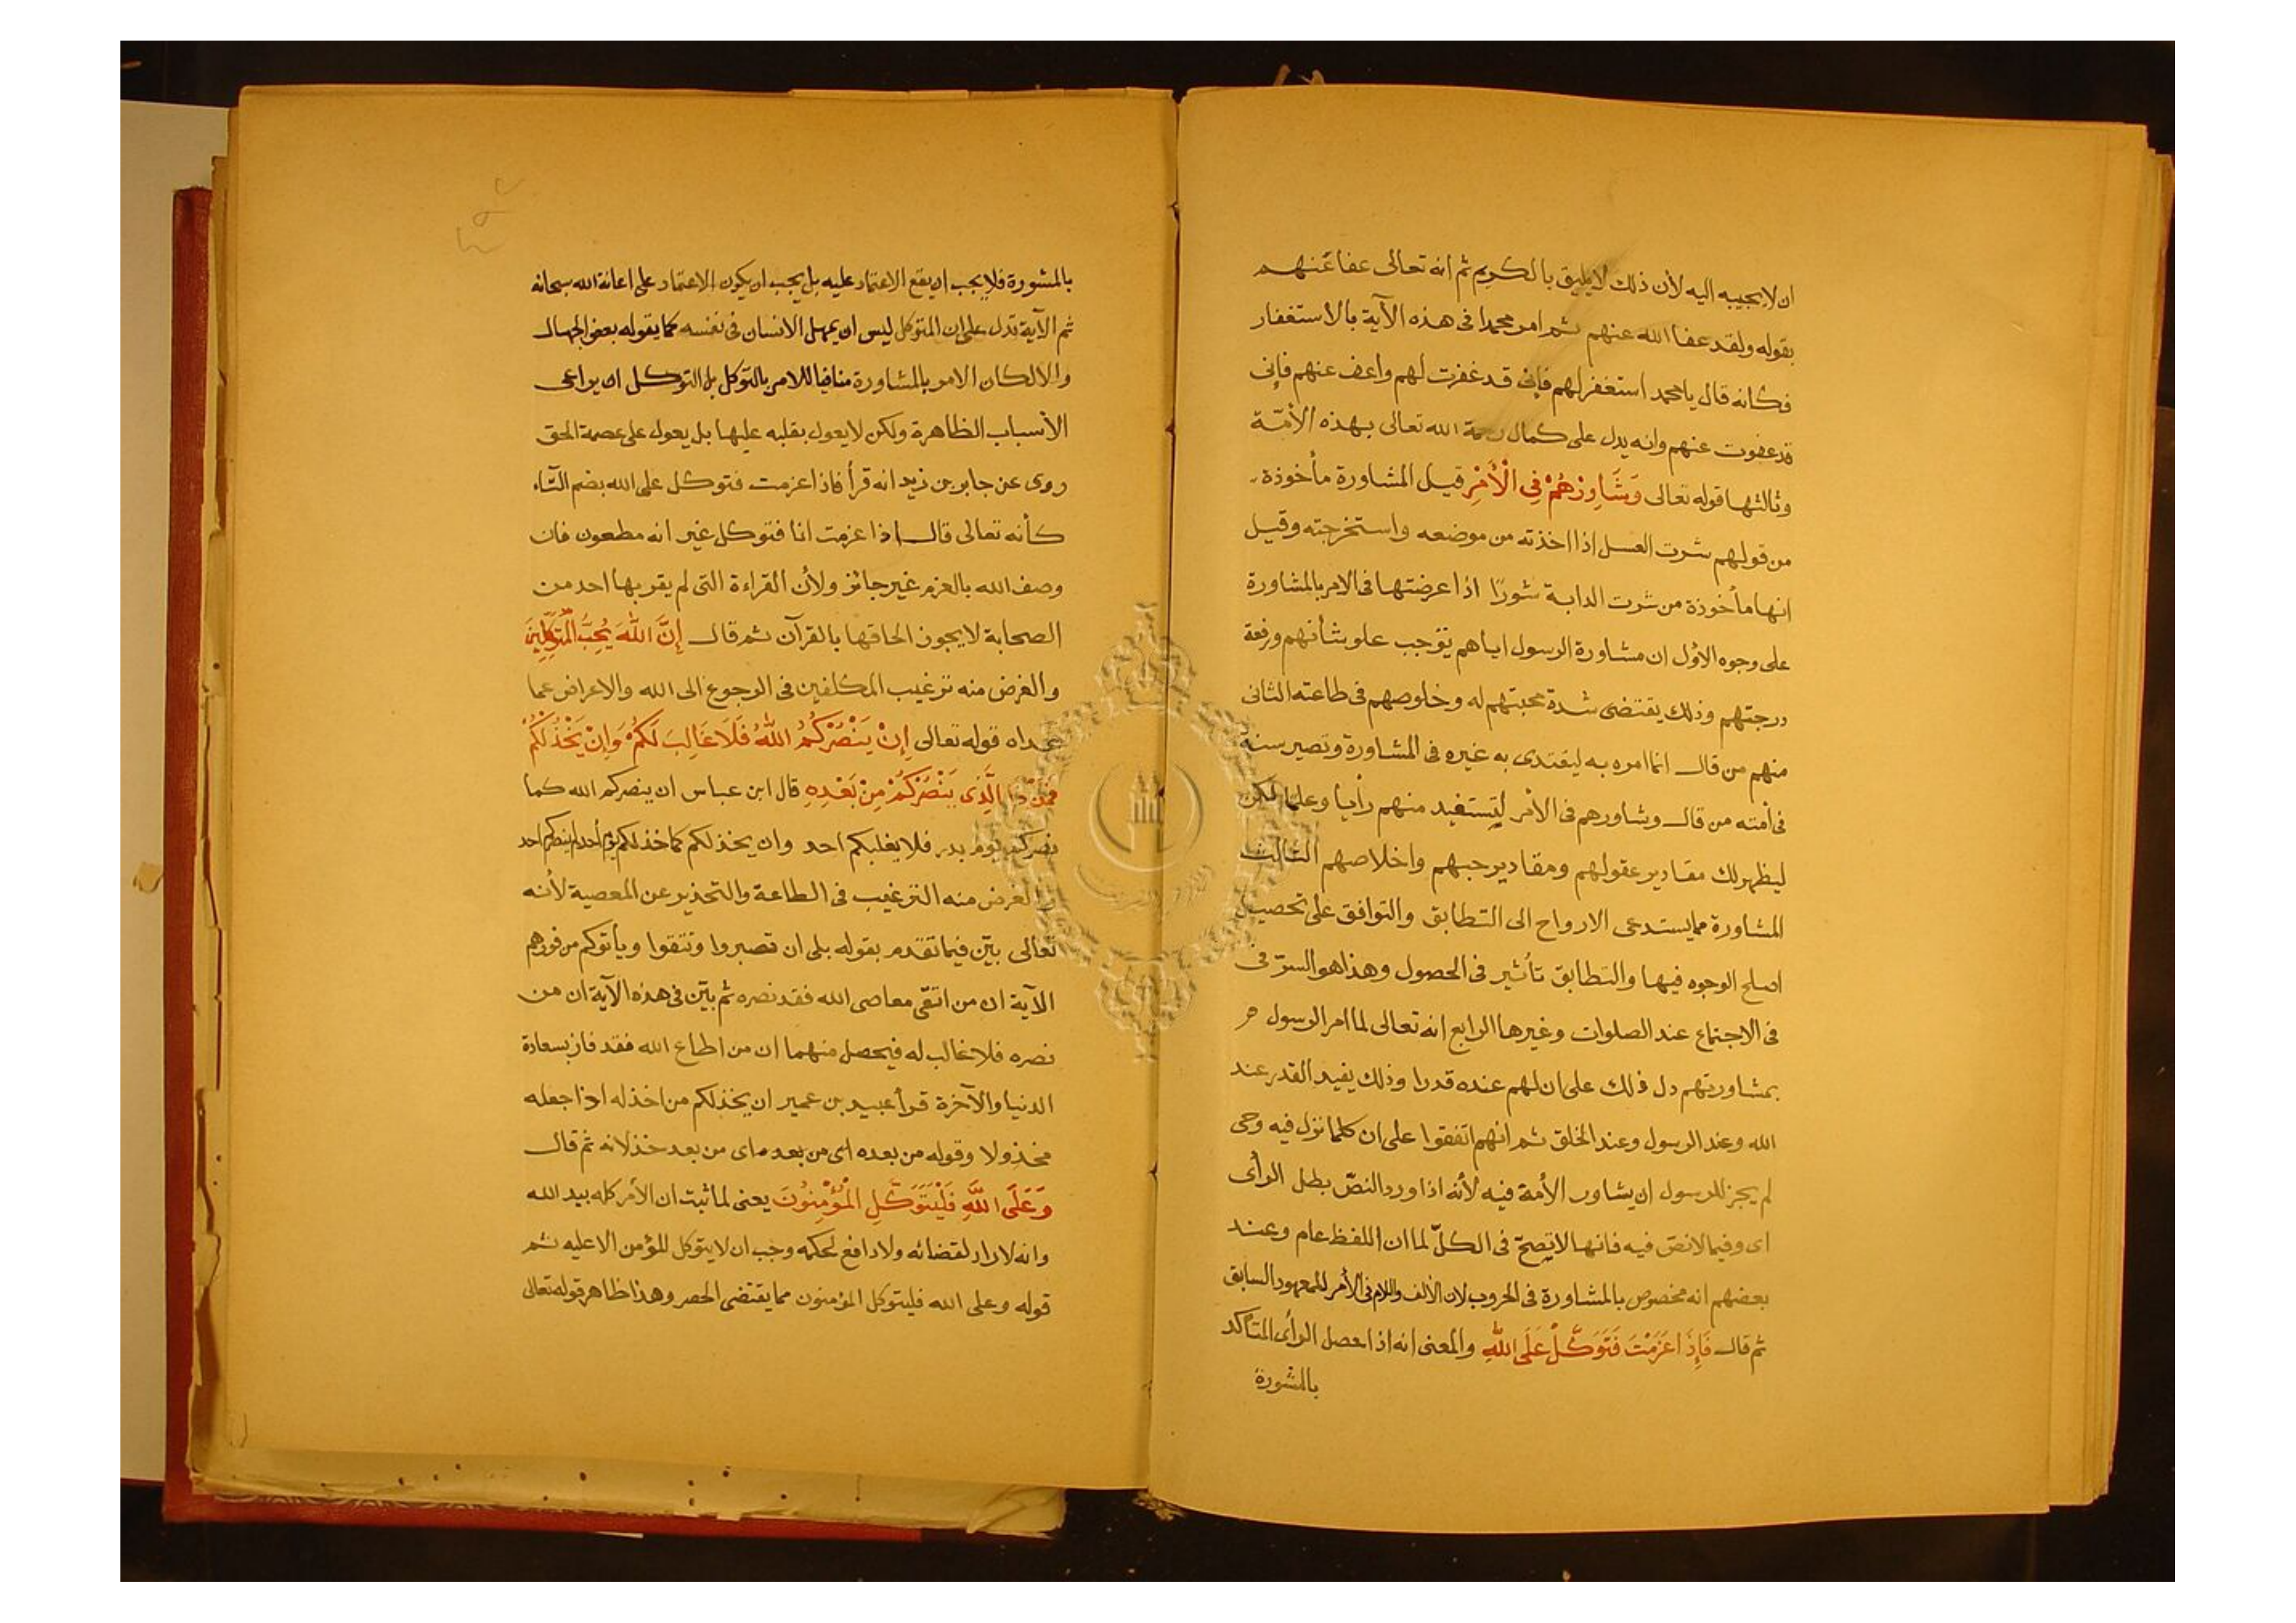 ان لا يجيبه اليه لأن ذلك لا يليق بالكريم ثم انه تعالى عفا عنهم
بقوله ولقد عفا الله عنهم ثم امر محمدا فى هذه الآية بالاستغفار
فكانه قال يا محمد استغفر لهم فإنى قد غفرت لهم واعف عنهم فإنى
قد عفوت عنهم وانه يدل على كمال رحمة الله تعالى بهذه الأمّة
وثالثها قوله تعالى وَشَاوِرْهُمْ فِى الْأَمْرِ قيل المشاورة مأخوذة
من قولهم شرت العسل اذا اخذته من موضعه واستخرجته وقيل
انها مأخوذة من شرت الدابة شورًا اذا عرضتها فى الامر بالمشاورة
على وجوه الاوّل ان مشاورة الرسول اياهم توجب علو شأنهم ورفعة
درجتهم وذلك يقتضى شدة محبتهم له وخلوصهم فى طاعته الثانى
منهم من قال انما امره به ليقتدى به غيره فى المشاورة وتصير سنة
فى أمته من قال وشاورهم فى الأمر لتستفيد منهم رأيا وعلما لكن
ليظهر لك مقادير عقولهم ومقادير حبهم واخلاصهم الثالث
المشاورة مما يستدعى الارواح الى التطابق والتوافق على تحصيل
اصلح الوجوه فيها والتطابق تأثير فى الحصول وهذا هو السرّ فى
فى الاجتماع عند الصلوات وغيرها الرابع انه تعالى لما امر الرسول
بمشاورتهم دل ذلك على ان لهم عنده قدرا وذلك يفيد القدر عند
الله وعند الرسول وعند الخلق ثم انهم اتفقوا على ان كلما نزل فيه وحى
لم يجز للرسول ان يشاور الأمة فيه لأنه اذا ورد النصّ بطل الرأى
اى وفيما لا نصّ فيه فانها لا تصحّ فى الكلّ لما ان اللفظ عام وعند
بعضهم انه مخصوص بالمشاورة فى الحروب لان الألف واللام فى الأمر للمعهود السابق
ثم قال فَإِذَا عَزَمْتَ فَتَوَكَّلْ عَلَى اللَّهِ والمعنى انه اذا حصل الرأى المتأكد
بالمشورة
بالمشورة فلا يجب ان يقع الاعتماد عليه بل يجب ان يكون الاعتماد على اعانة الله سبحانه
ثم الآية تدل على ان المتوكل ليس ان يهمل الانسان فى نفسه كما يقوله بعض الجهال
والا لكان الامر بالمشاورة منافيا للامر بالتوكل بل التوكل ان يراعى
الأسباب الظاهرة ولكن لا يعول بقلبه عليها بل يعول على عصمة الحق
روى عن جابر بن زيد انه قرأ فاذا عزمت فتوكل على الله بضم التّاء
كأنه تعالى قال اذا عزمت انا فتوكل غير انه مطعون فان
وصف الله بالعزم غير جائز ولأن القراءة التى لم يقر بها احد من
الصحابة لا يجوز الحاقها بالقرآن ثم قال إِنَّ اللَّهَ يُحِبُّ الْمُتَوَكِّلِينَ
والغرض منه ترغيب المكلفين فى الرجوع الى الله والاعراض عما
عداه قوله تعالى إِنْ يَنْصُرْكُمُ اللَّهُ فَلَا غَالِبَ لَكُمْ وَإِنْ يَخْذُلْكُمْ
فَمَنْ ذَا الَّذِى يَنْصُرُكُمْ مِنْ بَعْدِهِ قال ابن عباس ان ينصركم الله كما
نصركم يوم بدر فلا يغلبكم احد وان يخذلكم كما خذلكم يوم أحد لم ينصركم احد
والغرض منه الترغيب فى الطاعة والتحذير عن المعصية لأنه
تعالى بيّن فيما تقدم بقوله بلى ان تصبروا وتتقوا ويأتوكم من فورهم
الآية ان من اتقى معاصى الله فقد نصره ثم بيّن فى هذه الآية ان من
نصره فلا غالب له فيحصل منهما ان من اطاع الله فقد فاز بسعادة
الدنيا والآخرة قرأ عبيد بن عمير ان يخذلكم من اخذله اذا جعله
مخذولا وقوله من بعده اى من بعد ماى من بعد خذلانه ثم قال
وَعَلَى اللَّهِ فَلْيَتَوَكَّلِ الْمُؤْمِنُونَ يعنى لما ثبت ان الأمر كله بيد الله
وانه لا راد لقضائه ولا دافع لحكمه وجب ان لا يتوكل المؤمن الا عليه ثم
قوله وعلى الله فليتوكل المؤمنون مما يقتضى الحصر وهذا ظاهر قوله تعالى